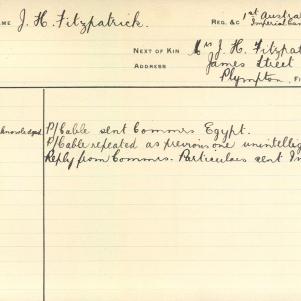 AME J. H. Fitzpatrick. REG. &C 1st Austral
Imperial Cam
NEXT OF KIN Mrs J. H. Fitzpat
ADDRESS James Street
Plympton,
cknowledged P/Cable sent Commrs. Egypt.
P/Cable repeated as previous one unintellig
Reply from Commrs. Particulars sent